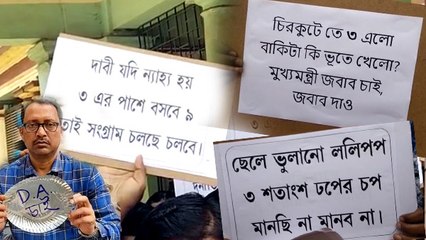 দাবী যদি ন্যায্য হয়
৩ এর পাশে বসবে ৯
তাই সংগ্রাম চলছে চলবে।
চিরকুটে তে ৩ এলো
বাকিটা কি ভূতে খেলো?
মুখ্যমন্ত্রী জবাব চাই,
জবাব দাও
ছেলে ভুলানো ললিপপ
৩ শতাংশ ঢপের চপ
মানছি না মানব না।
D.A
চাই